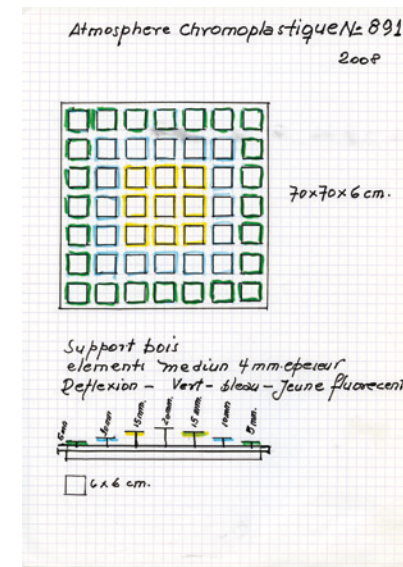 Atmosphere chromoplastique № 891
2008
70x70x6 cm.
Support bois
elements mediun 4 mm. epeseur
Reflexion - Vert - bleau - Jeune fluorecent
5mm
10mm.
15mm.
20mm.
15 mm.
10mm
5mm.
6x6 cm.